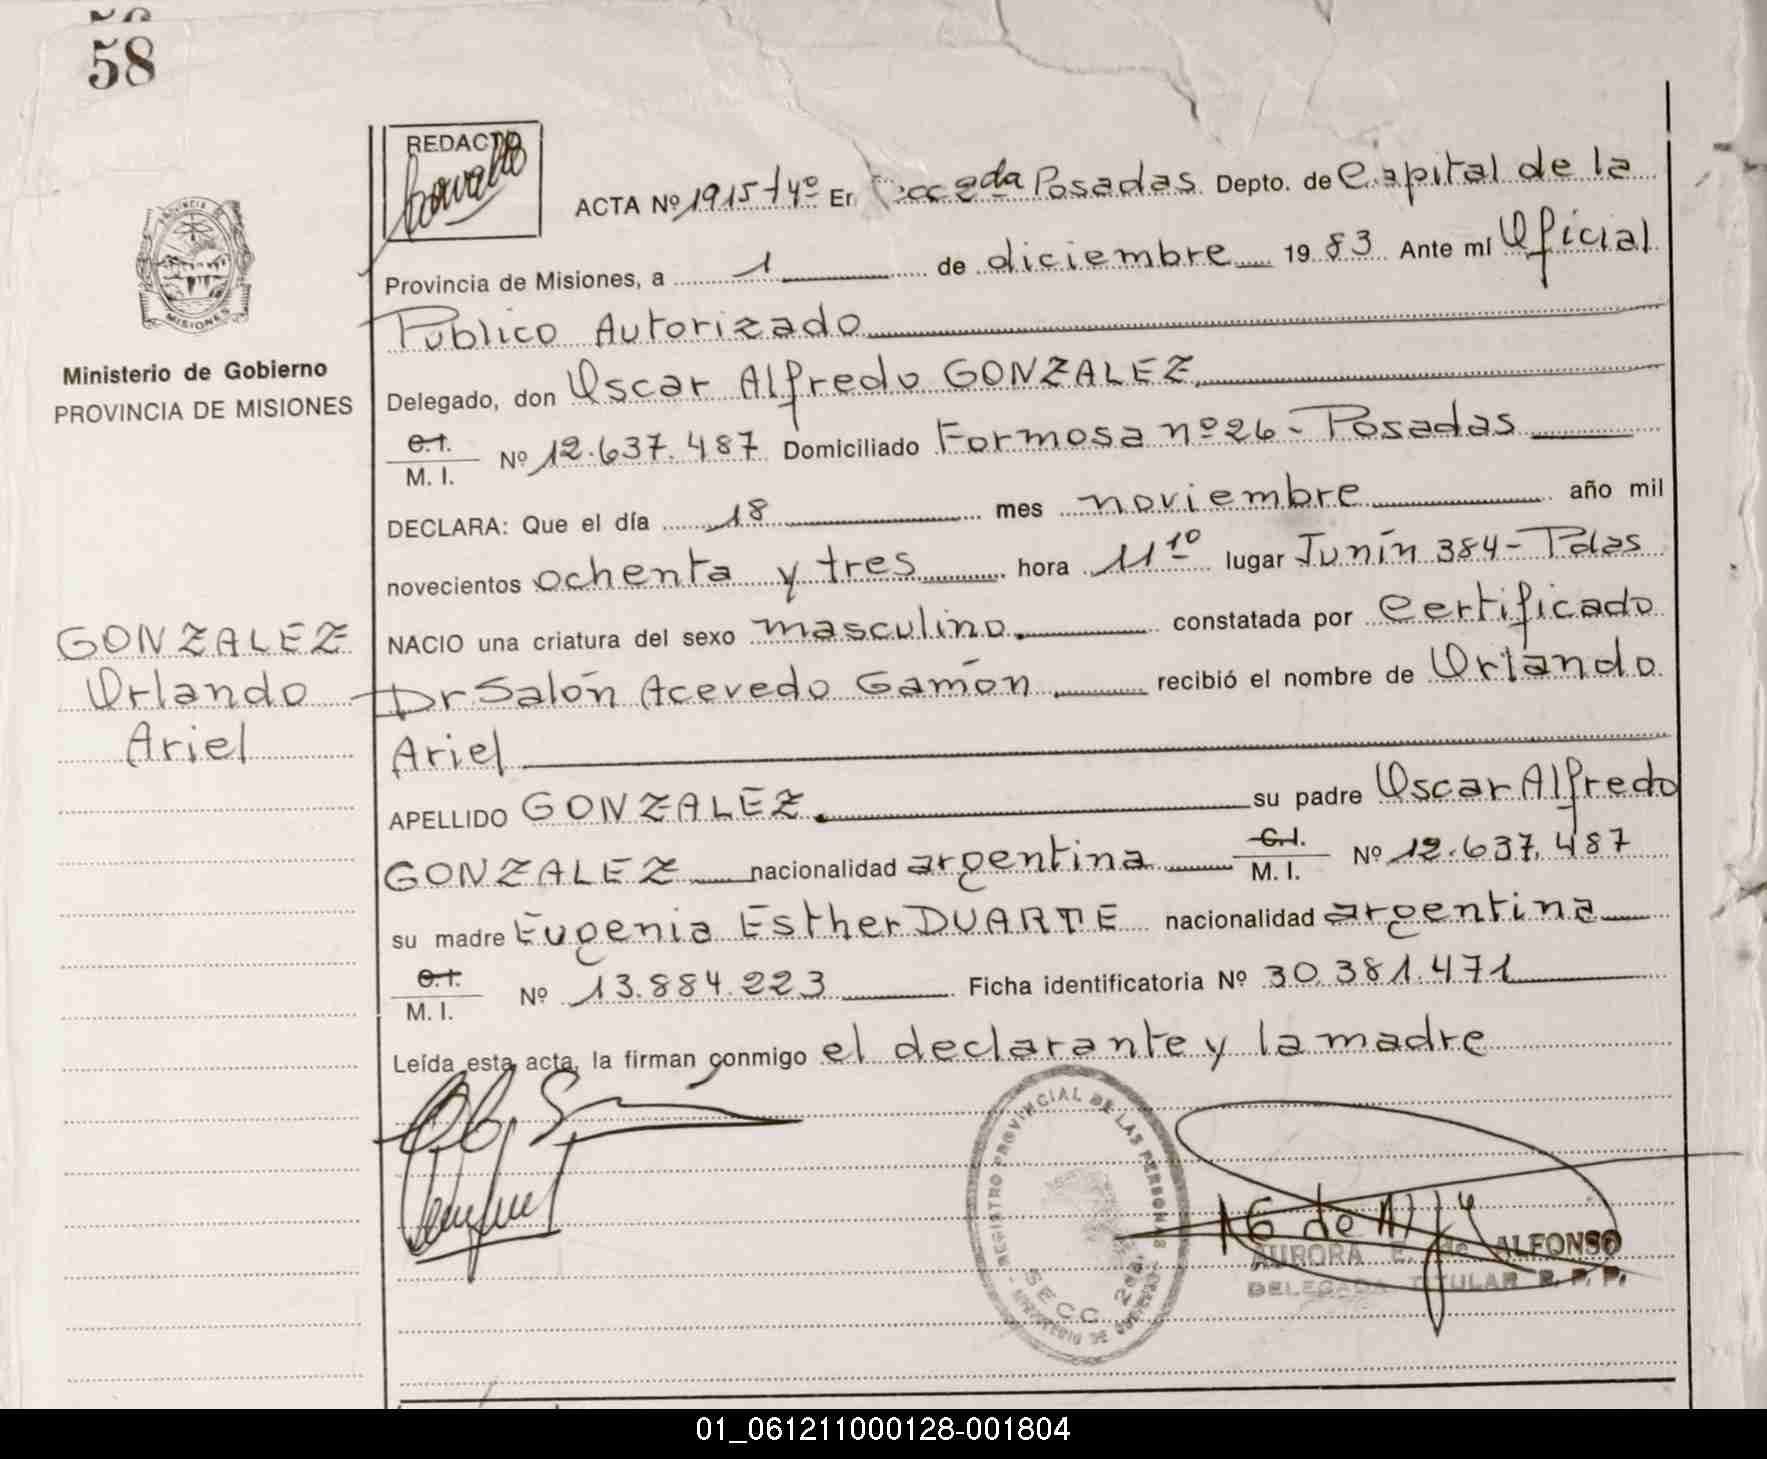 58
REDACTO
ACTA Nº 1915 t4º En Secc 2da Posadas Depto. de Capital de la
Provincia de Misiones, a 1 de diciembre 1983 Ante mí Oficial
Público Autorizado
Delegado, don Oscar Alfredo GONZALEZ
C.I. M. I. Nº 12.637.487 Domiciliado Formosa nº 26 - Posadas
DECLARA: Que el día 18 mes noviembre año mil
novecientos ochenta y tres hora 11 10 lugar Junín 384 - Pdas
NACIO una criatura del sexo masculino. constatada por Certificado
Dr Salón Acevedo Gamón recibió el nombre de Orlando
Ariel
APELLIDO GONZALEZ su padre Oscar Alfredo
GONZALEZ nacionalidad argentina C.I. M. I. Nº 12.637.487
su madre Eugenia Esther DUARTE nacionalidad argentina
C.I. M. I. Nº 13.884.223 Ficha identificatoria Nº 30.381.471
Leída esta acta, la firman conmigo el declarante y la madre
PROVINCIA DE
MISIONES
Ministerio de Gobierno
PROVINCIA DE MISIONES
GONZALEZ
Orlando
Ariel
REGISTRO PROVINCIAL DE LAS PERSONAS
SECC. 2da
AURORA E. de ALFONSO
DELEGADA TITULAR R. P. P.
01_061211000128-001804